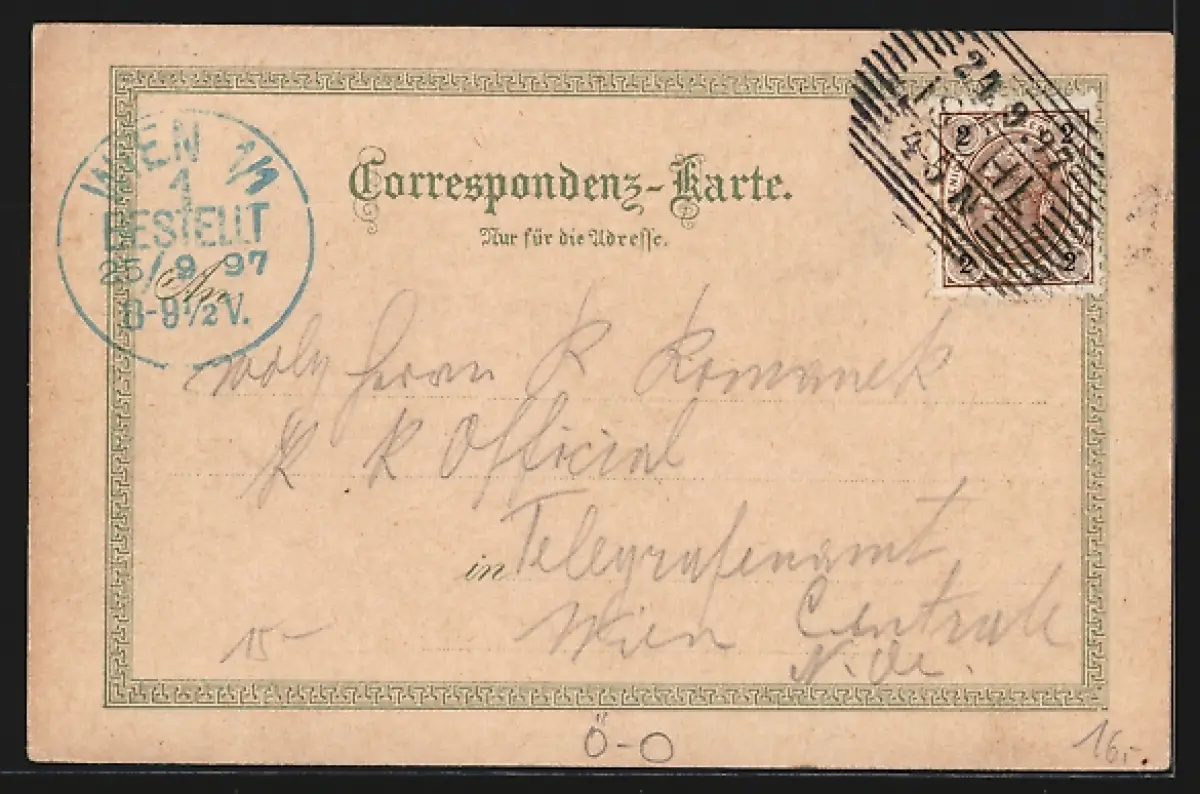 WIEN 1/1
1
BESTELLT
25/9 97
8-9½V.
Correspondenz-Karte.
Nur für die Adresse.
24 9.97
4-5N
2 2
2 2
An
wolg Herrn K Romanek
K K Official
in Telegrafenamt
Wien Centrale
N. Oe.
15-
Ö-O
16,-